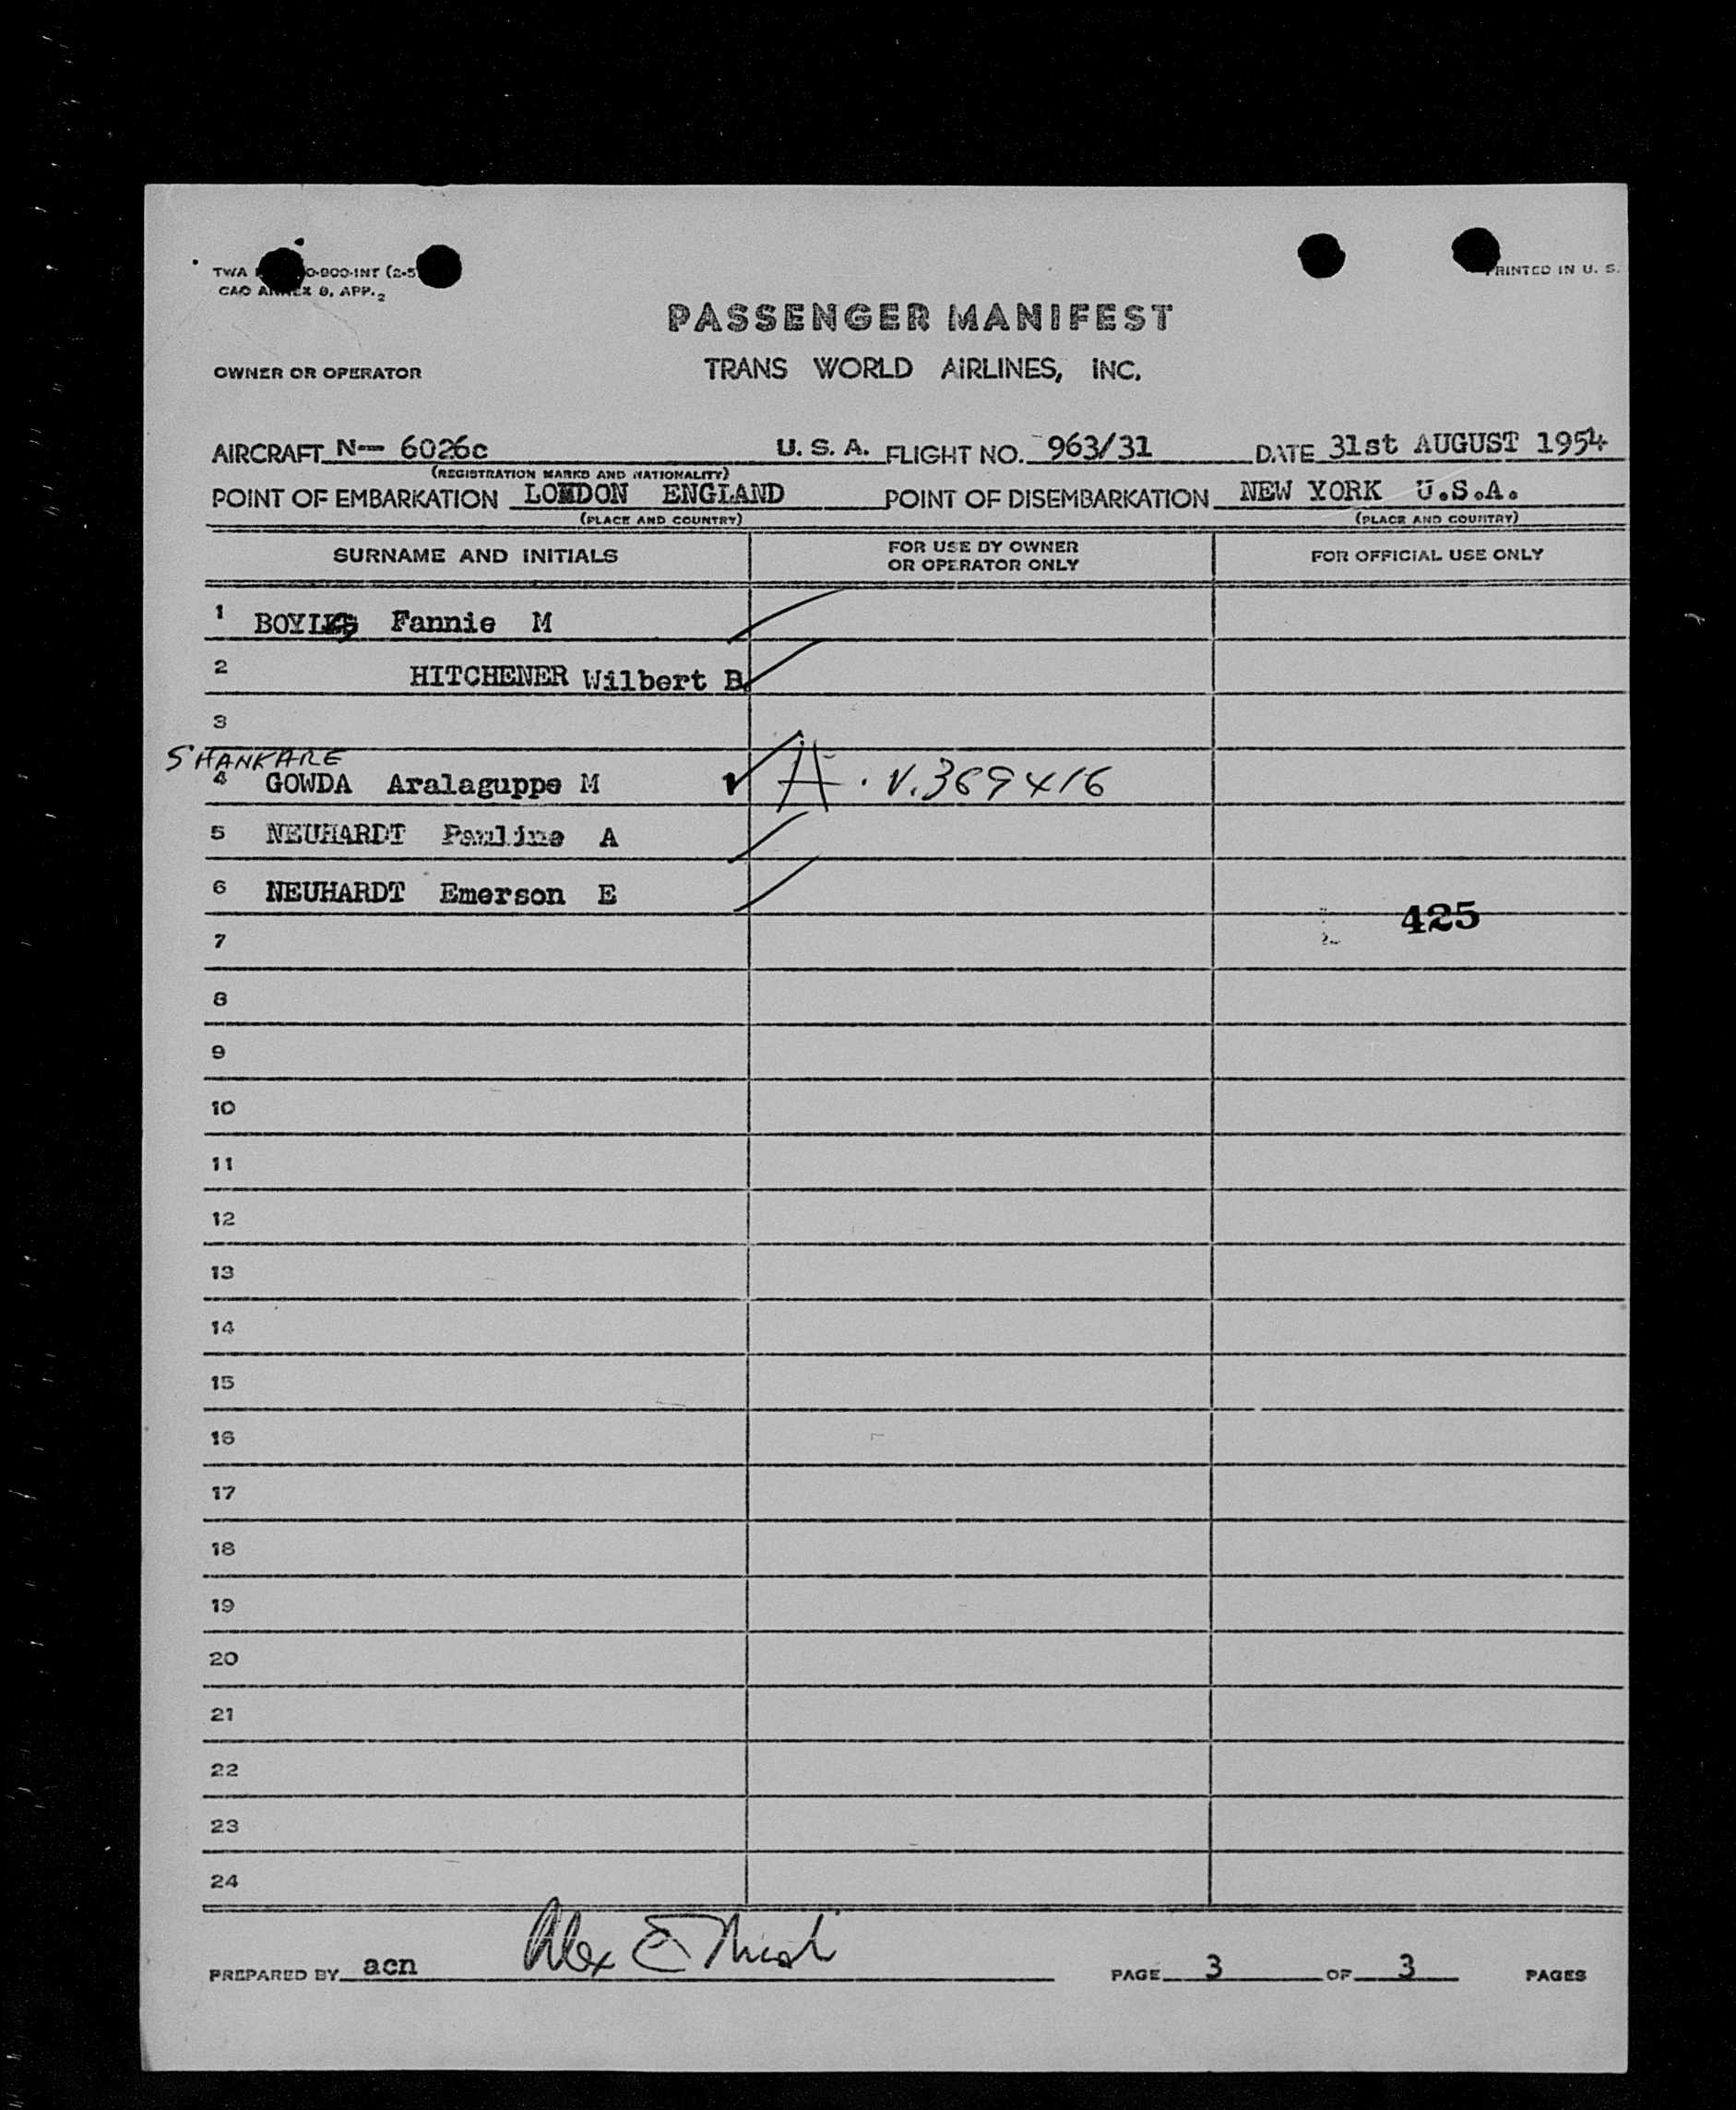 TWA 0-900-INT (2-5
CAO ANNEX 9, APP. 2
PRINTED IN U. S.
PASSENGER MANIFEST
OWNER OR OPERATOR TRANS WORLD AIRLINES, INC.
AIRCRAFT N— 6026c U. S. A. FLIGHT NO. 963/31 DATE 31st AUGUST 1954
(REGISTRATION MARKS AND NATIONALITY)
POINT OF EMBARKATION LONDON ENGLAND POINT OF DISEMBARKATION NEW YORK U.S.A.
(PLACE AND COUNTRY) (PLACE AND COUNTRY)
SURNAME AND INITIALS FOR USE BY OWNER OR OPERATOR ONLY FOR OFFICIAL USE ONLY
1 Fannie M
2 HITCHENER Wilbert B
3
SHANKARE
4 GOWDA Aralaguppe M A . V.369416
5 NEUHARDT Pauline A
6 NEUHARDT Emerson E
425
7
8
9
10
11
12
13
14
15
16
17
18
19
20
21
22
23
24
PREPARED BY acn Alex E PAGE 3 OF 3 PAGES